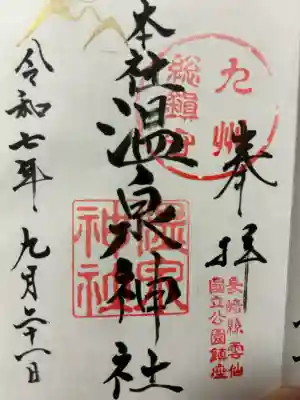 奉拝
九州
総鎮守
長崎縣雲仙
國立公園鎮座
本社温泉神社
温泉
神社
令和七年九月二十一日